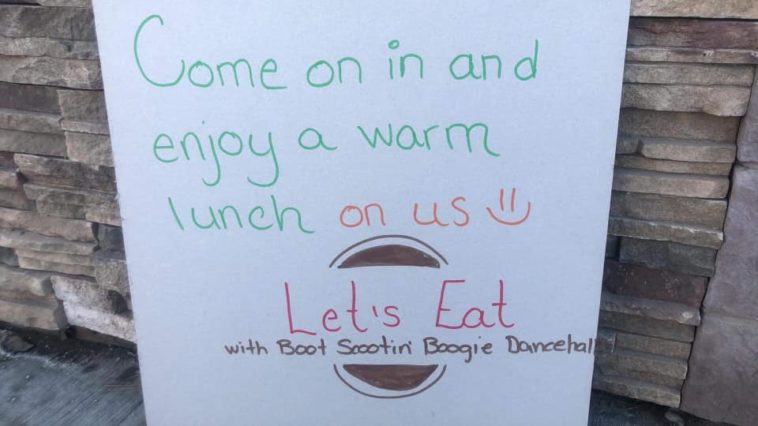 Come on in and
enjoy a warm
lunch on us =)
Let's Eat
with Boot Scootin' Boogie Dancehall